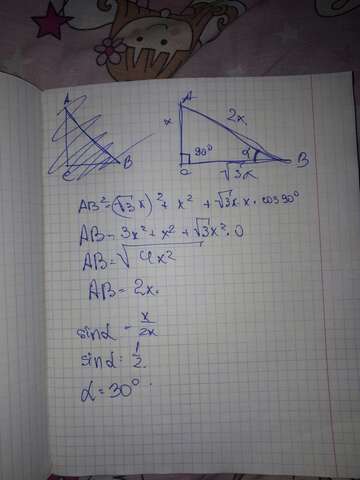 A
C
B
A
x
2x
90°
α
C
√3x
B
AB² = (√3x)² + x² + √3x x · cos90°
AB = 3x² + x² + √3x² · 0
AB = √4x²
AB = 2x.
sinα = x/2x
sinα = 1/2
α = 30°